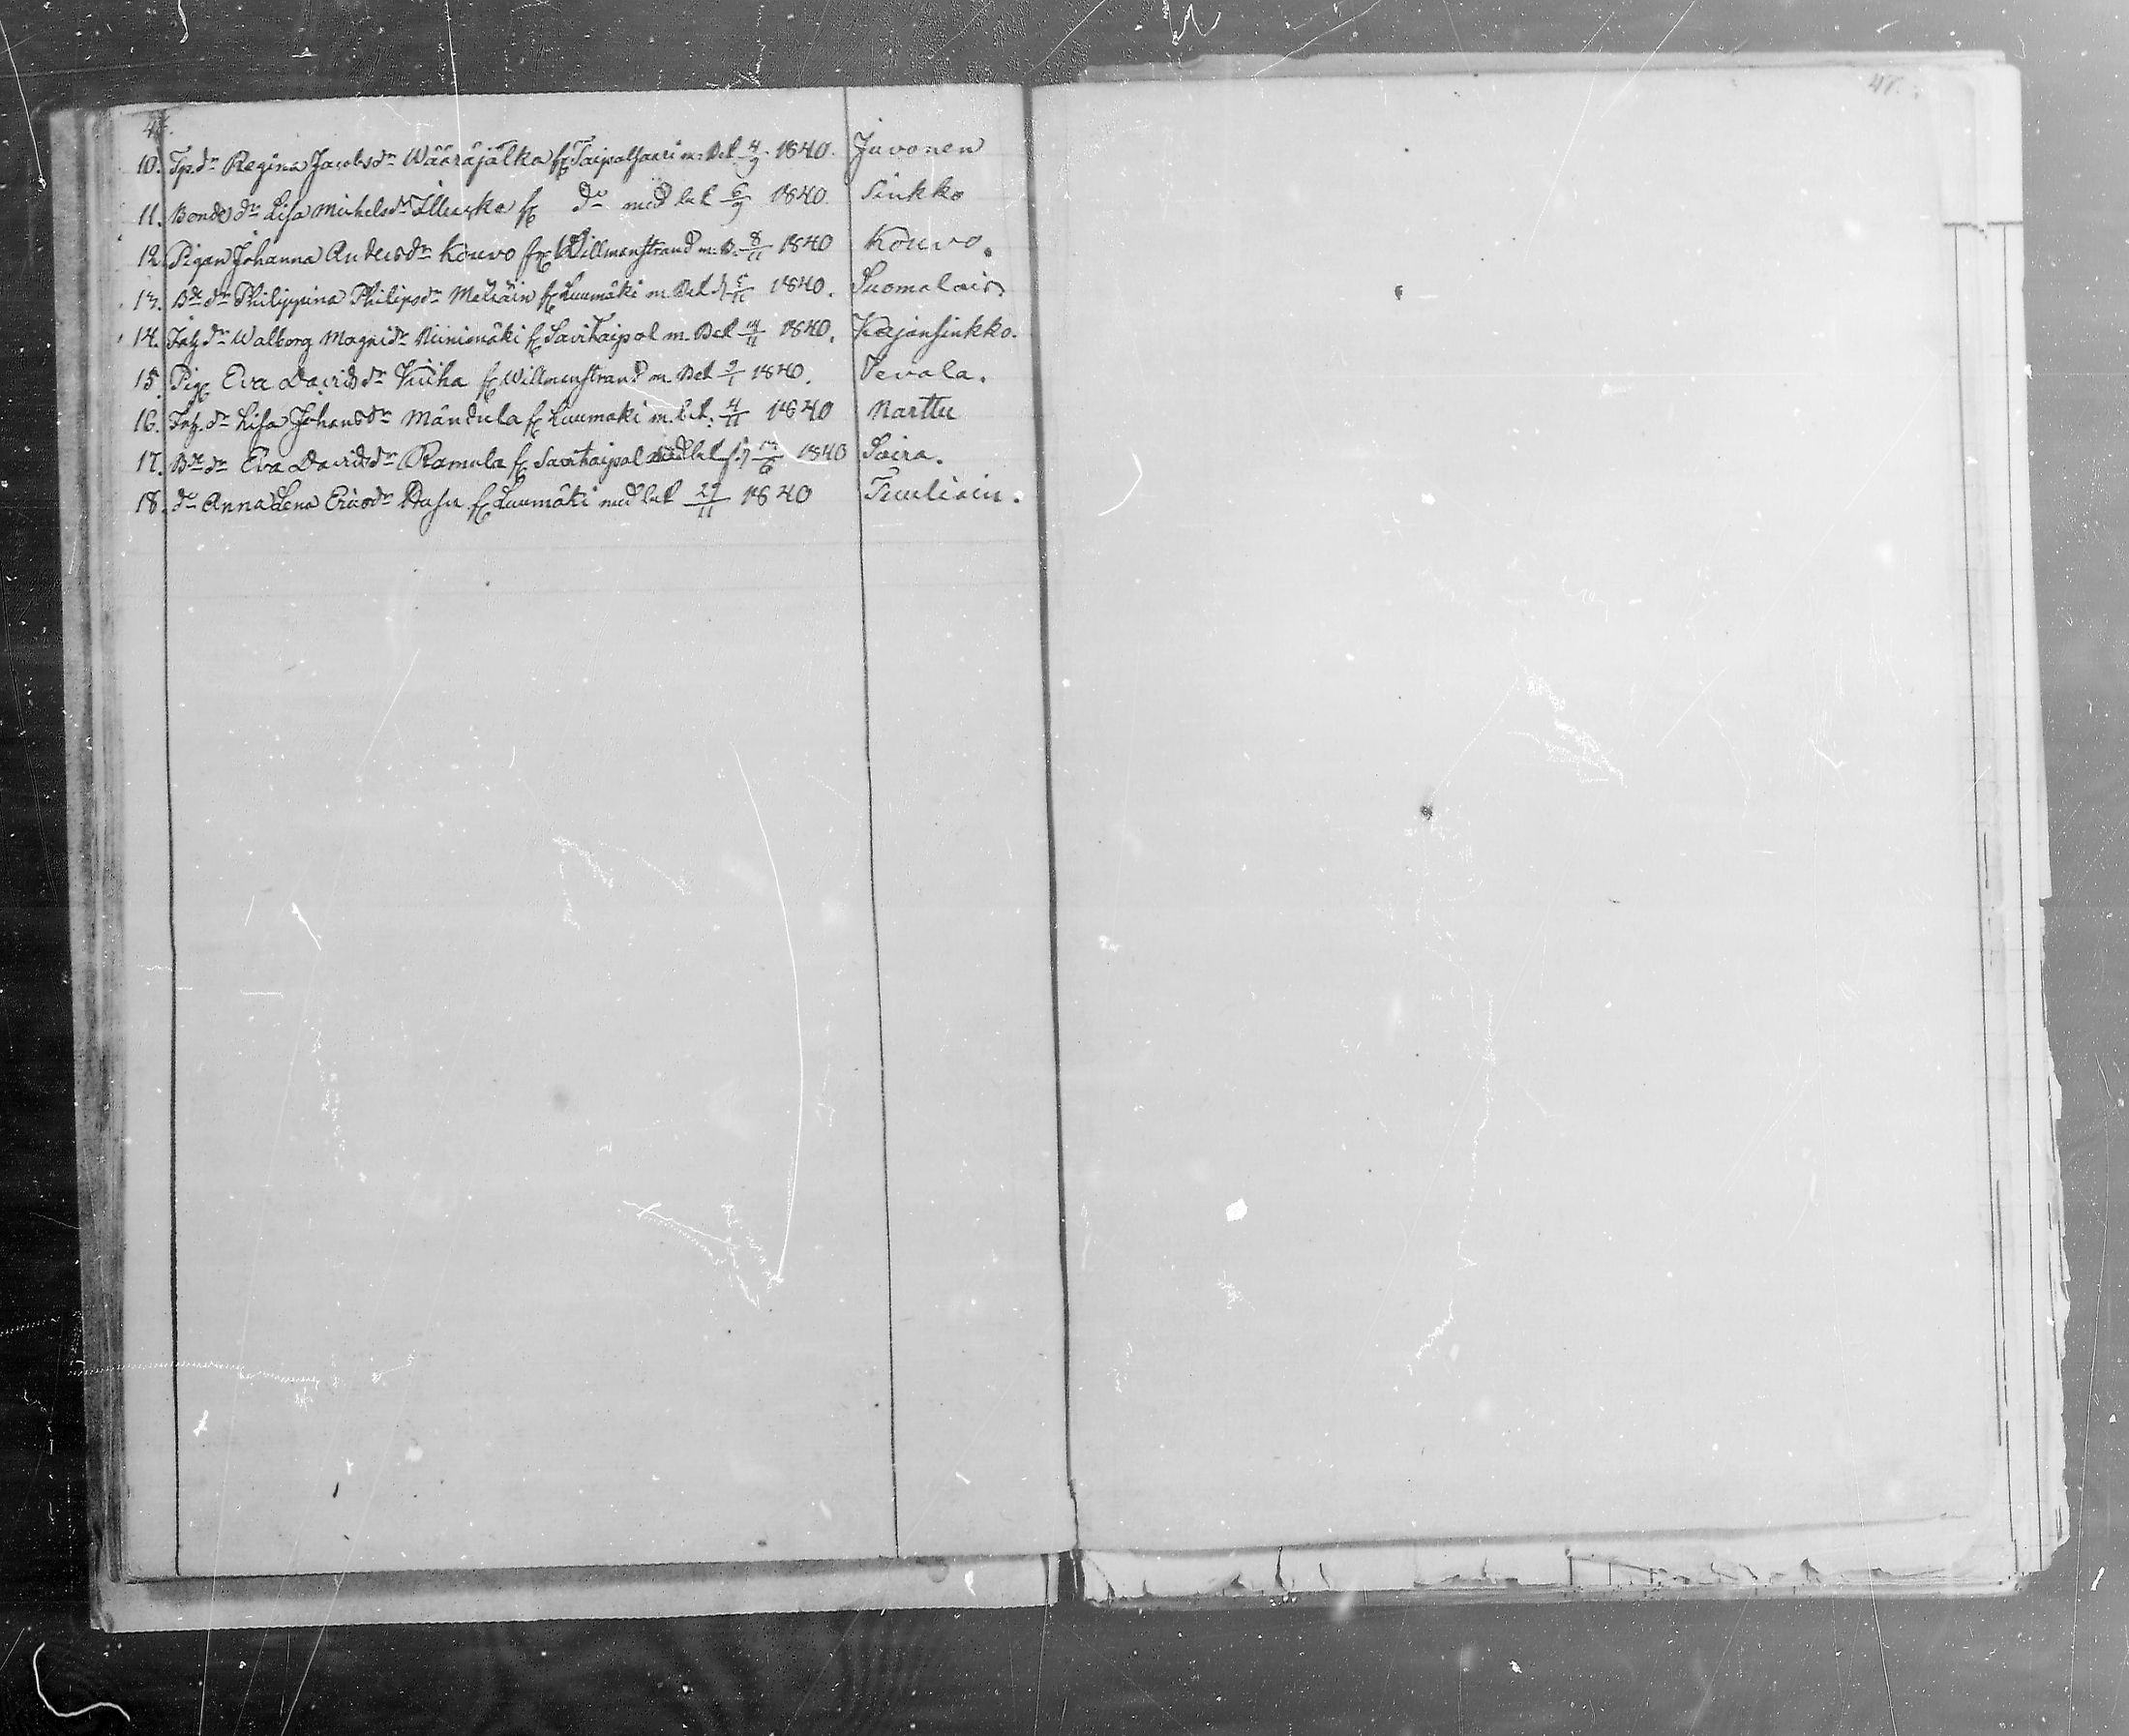 10. Tp. dr Regina Jacobsdr Wääräjalka fr Taipalsaari m. Bet 4/9 1840. Juvonen
11. Bonde dr Lisa Michelsdr fr do med bet 6/9 1840. Sinkko
12. Pigan Johanna Andersdr Kouvo fr Willmanstrand m. B. 8/11 1840 Kouvo.
13. Bde dr Philippina Philipsdr fr Luumäki m Bet 1840. Suomalain
14. dr Walborg Magnidr Niinimäki fr Savitaipal m. Bet 1840. Karjansinkko.
15. Pig. Eva Davidsdr fr Willmanstrand m Bet 1840. Vevala.
16. dr Lisa Johansdr Mändula fr Luumäki m. bet. 4/11 1840 Narttu
17. Bde dr Eva Davidsdr Ramula fr Savitaipal med bet 1840 Saira.
18. do Anna Lena Ericsdr fr Luumäki med bet 29/11 1840 Tuuliain.